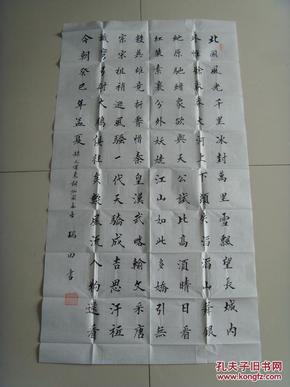 北國風光千里冰封萬里雪飄望長城內
外惟餘莽莽大河上下頓失滔滔山舞銀
蛇原馳蠟象欲與天公試比高須晴日看
紅裝素裹分外妖嬈江山如此多嬌引無
數英雄競折腰惜秦皇漢武略輸文采唐
宗宋祖稍遜風騷一代天驕成吉思汗祗
識彎弓射大鵰俱往矣數風流人物還看
今朝癸巳年孟夏錄毛澤東詞沁園春雪田書